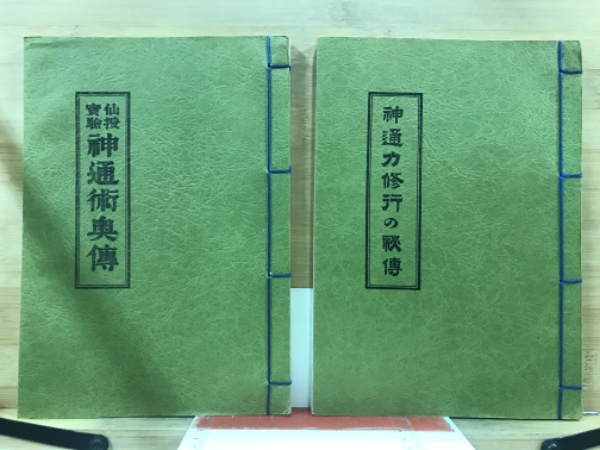 仙授
實驗
神通術奥傳
神通力修行の祕傳